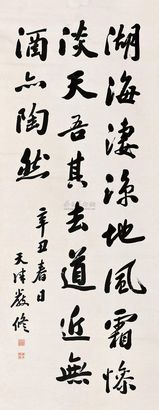 湖海凄凉地風霜憭
淡天吾其去道近無
酒亦陶然
辛丑春日
天津嚴修